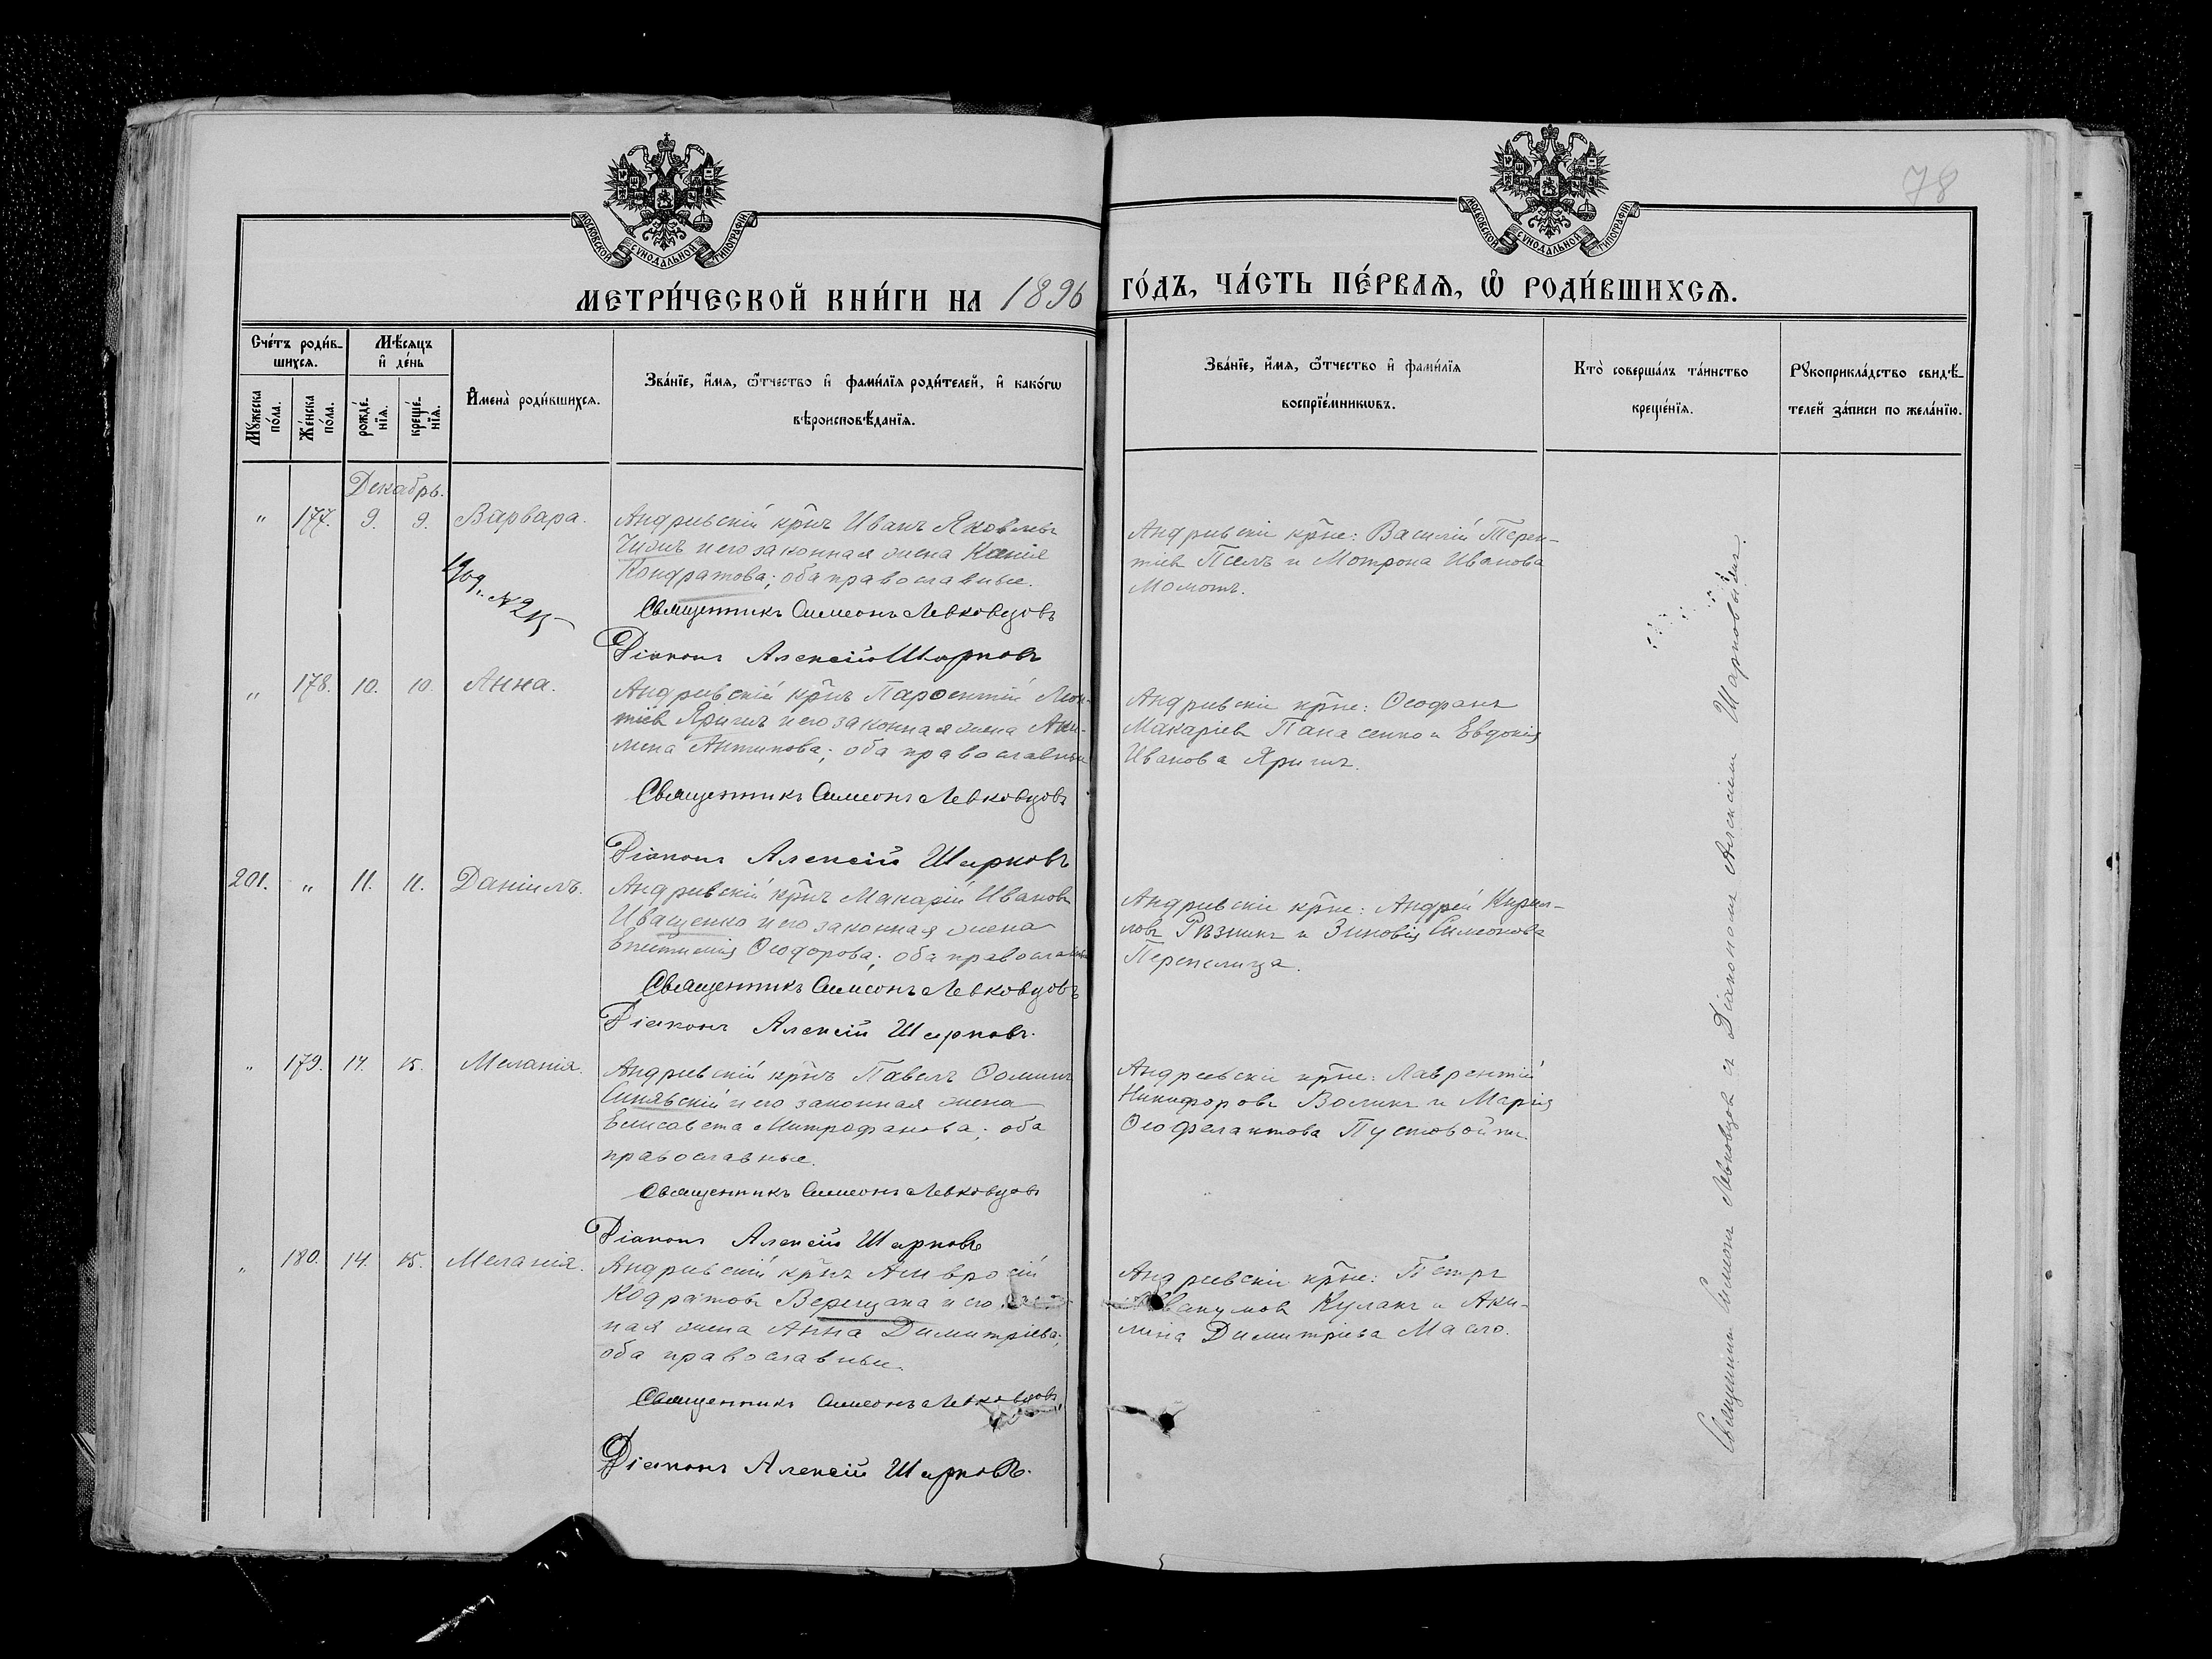 78
МОСКОВСКОЙ СѴНОДАЛЬНОЙ ТИПОГРАФІИ
МОСКОВСКОЙ СѴНОДАЛЬНОЙ ТИПОГРАФІИ
МЕТРИ́ЧЕСКОЙ КНИ́ГИ НА 1896 ГО́ДЪ, ЧА́СТЬ ПЕ́РВАѦ, Ѽ РОДИ́ВШИХСѦ.
Сче́тъ роди́в-
шихсѧ.
Мѣ́сѧцъ
и҆ де́нь
Мꙋ́жеска
по́ла.
Же́нска
по́ла.
рожде́-
нїѧ.
креще́-
нїѧ.
И҆мена̀ роди́вшихсѧ.
Зва́нїе, и҆́мѧ, ѻ҆́тчество и҆ фами́лїѧ роди́телей, и҆ како́гѡ
вѣроисповѣ́данїѧ.
Зва́нїе, и҆́мѧ, ѻ҆́тчество и҆ фами́лїѧ
воспрїе́мникѡвъ.
Кто̀ соверша́лъ та́инство
креще́нїѧ.
Рꙋкоприкла́дство свидѣ́-
телей за́писи по жела́нїю.
Декабрь.
" 177. 9. 9. Варвара.
Андреевскій кр̃нъ Иванъ Яковлевъ
и его законная жена Ксенія
Кондратова; оба православные.
Священникъ Симеонъ Левковцовъ
Діаконъ Алексій Шарковъ
Андреевскіе кр̃не: Василій Терен-
тіевъ Пселъ и Мотрона Иванова
Момотъ.
" 178. 10. 10. Анна.
Андреевскій кр̃нъ Парѳентій Леон-
тіевъ Яришъ и его законная жена Аки-
лина Антипова; оба православные
Священникъ Симеонъ Левковцовъ
Діаконъ Алексій Шарковъ
Андреевскіе кр̃не: Ѳеофанъ
Макаріевъ Панасенко и Евдокія
Иванова Яришъ.
201. " 11. 11. Даніилъ.
Андреевскій кр̃нъ Макарій Ивановъ
Иващенко и его законная жена
Епистимія Ѳеодорова; оба православные
Священникъ Симеонъ Левковцовъ
Діаконъ Алексій Шарковъ.
Андреевскіе кр̃не: Андрей Кирил-
ловъ Рѣзникъ и Зиновія Симеонова
Перепелица.
" 179. 14. 15. Меланія.
Андреевскій кр̃нъ Павелъ Ѳоминъ
Синявскій и его законная жена
Елисавета Митрофанова; оба
православные.
Священникъ Симеонъ Левковцовъ
Діаконъ Алексій Шарковъ
Андреевскіе кр̃не: Лаврентій
Никифоровъ Воликъ и Марія
Ѳеофелактова Пустовойтъ.
" 180. 14. 15. Меланія.
Андреевскій кр̃нъ Амвросій
Кодратовъ Верещака и его
ная жена Анна Димитріева;
оба православные.
Священникъ Симеонъ Левковцовъ
Діаконъ Алексій Шарковъ.
Андреевскіе кр̃не: Петръ
Кулакъ и Аки-
лина Димитріева Масло.
Священникъ Симеонъ Левковцовъ съ Діакономъ Алексіемъ Шарковымъ.